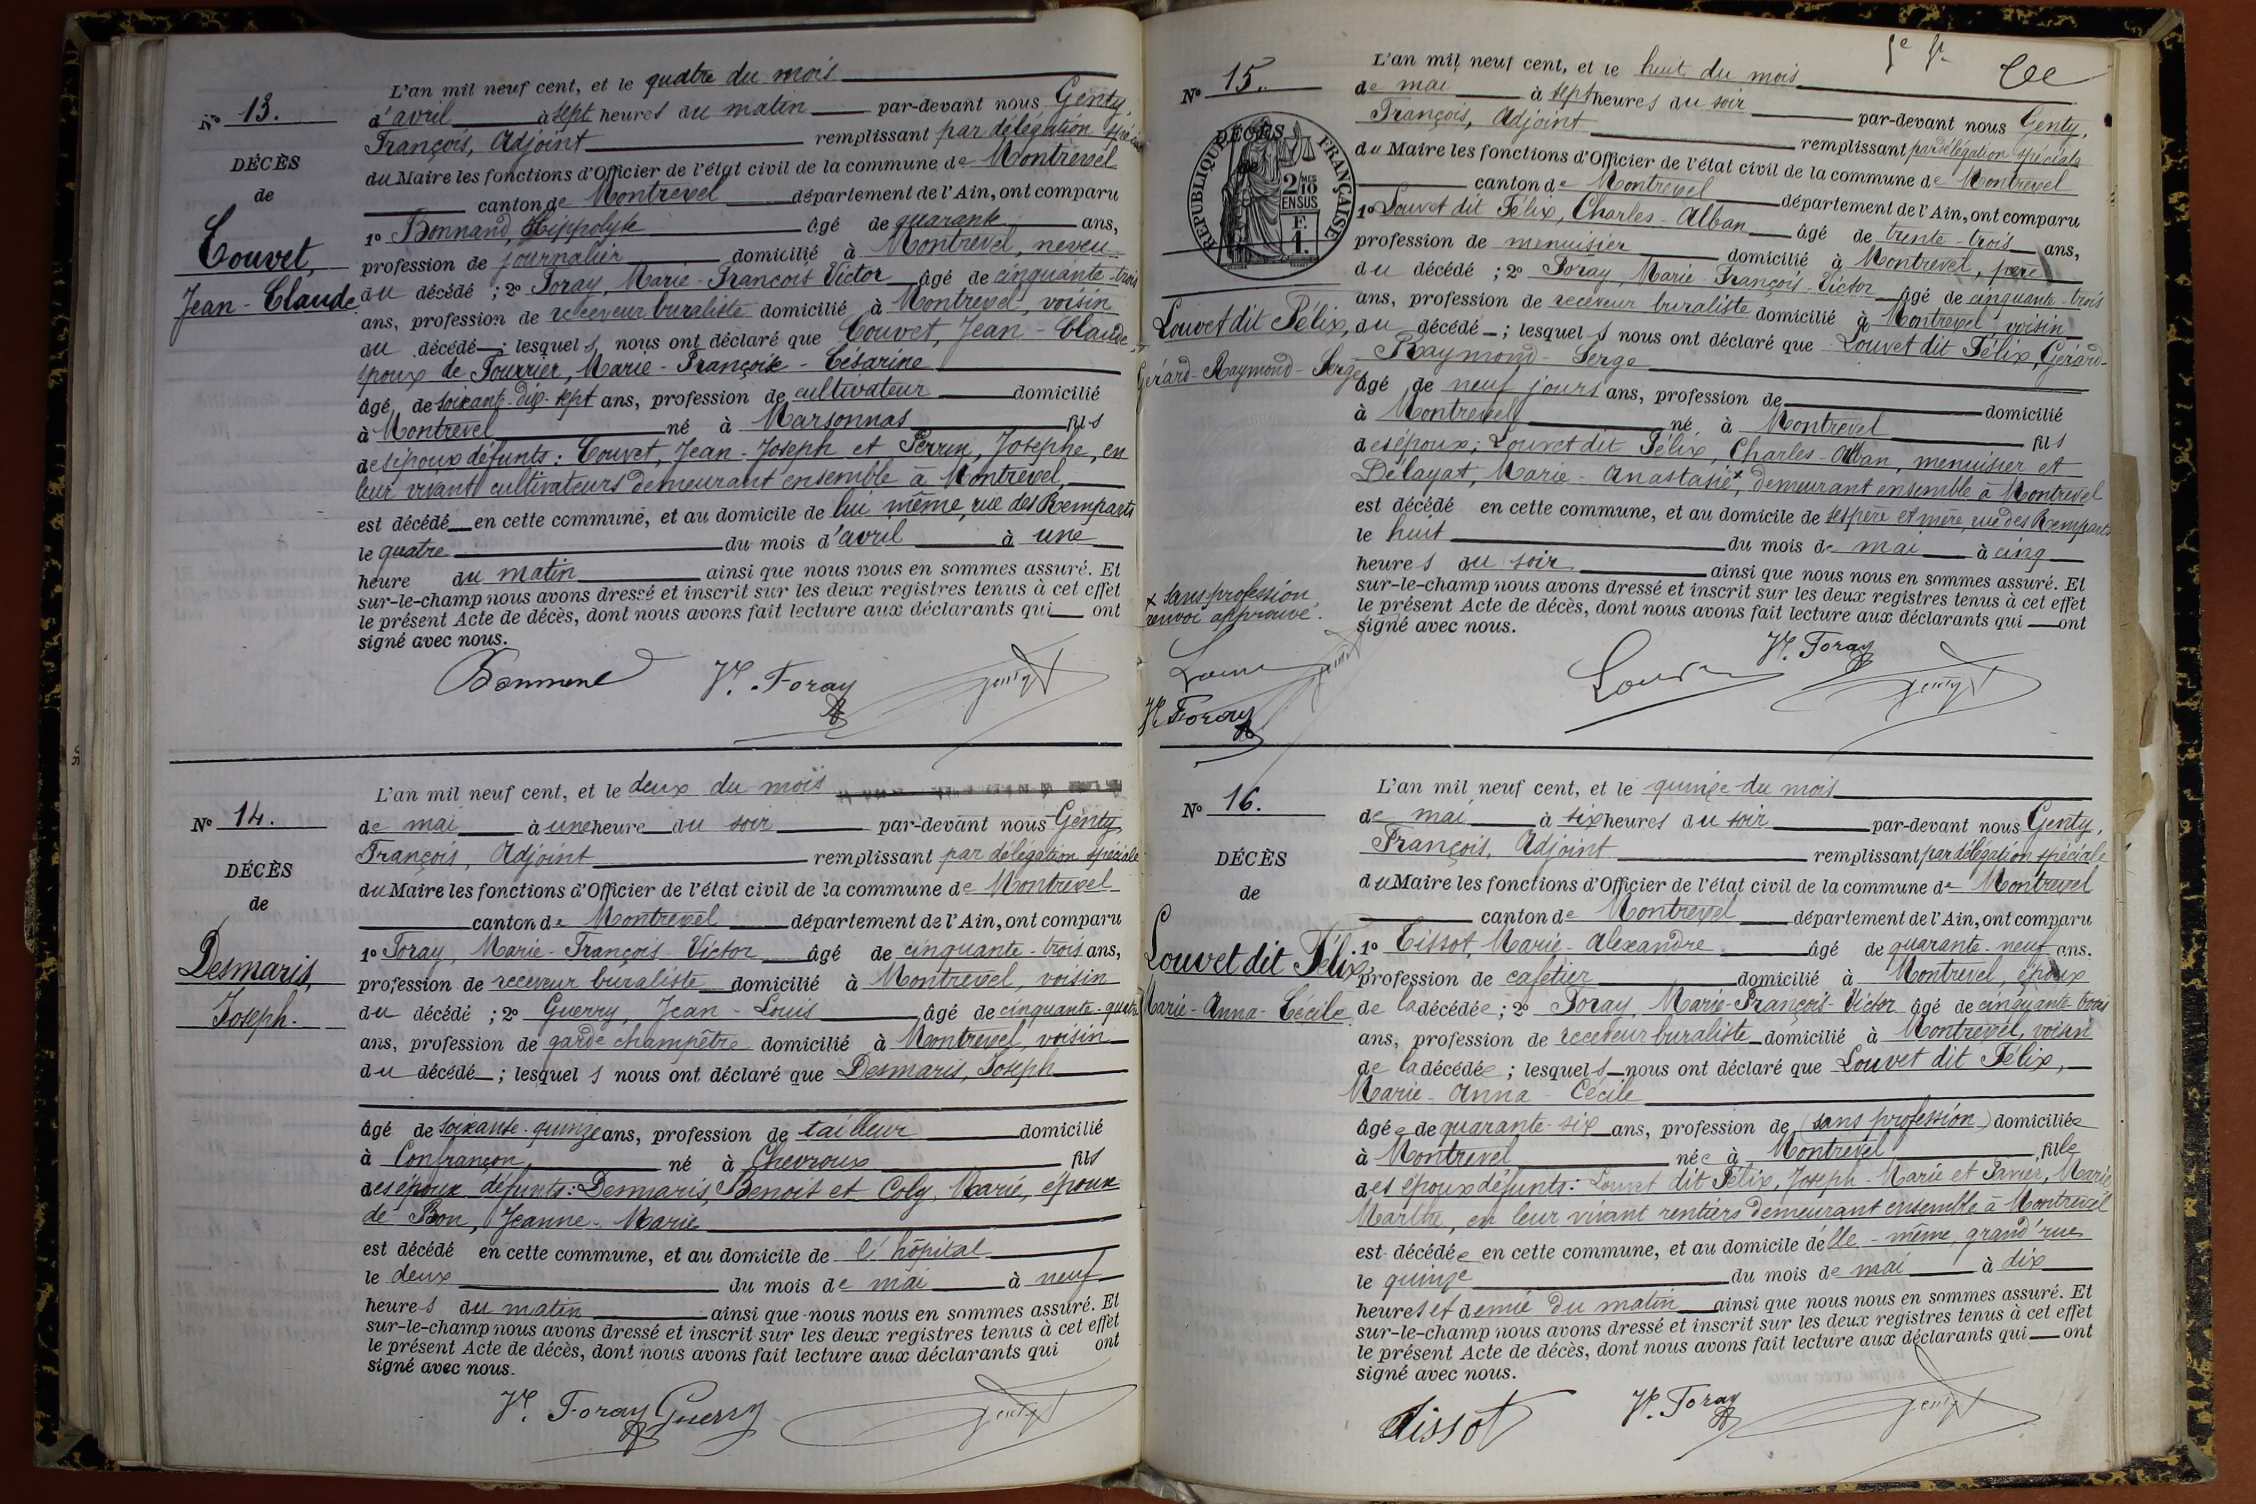 N° 13.
DÉCÈS
de
Couvet,
Jean-Claude.
L'an mil neuf cent, et le quatre du mois
d'avril à sept heures du matin par-devant nous Genty,
François, Adjoint remplissant par délégation spéciale
du Maire les fonctions d'Officier de l'état civil de la commune de Montrevel
canton de Montrevel département de l'Ain, ont comparu
1° Bonnand, Hippolyte âgé de quarante ans,
profession de journalier domicilié à Montrevel, neveu
du décédé ; 2° Foray, Marie-François Victor âgé de cinquante-trois
ans, profession de receveur buraliste domicilié à Montrevel, voisin
du décédé ; lesquels nous ont déclaré que Couvet, Jean-Claude,
époux de Fourrier, Marie-Françoise-Césarine
âgé de soixante-dix-sept ans, profession de cultivateur domicilié
à Montrevel né à Marsonnas fils
des époux défunts : Couvet, Jean-Joseph et Perrin, Josephe, en
leur vivant cultivateurs demeurant ensemble à Montrevel,
est décédé en cette commune, et au domicile de lui même, rue des Remparts
le quatre du mois d'avril à une
heure du matin ainsi que nous nous en sommes assuré. Et
sur-le-champ nous avons dressé et inscrit sur les deux registres tenus à cet effet
le présent Acte de décès, dont nous avons fait lecture aux déclarants qui ont
signé avec nous.
Vr. Foray Genty
N° 14.
DÉCÈS
de
Desmaris,
Joseph.
L'an mil neuf cent, et le deux du mois
de mai à une heure du soir par-devant nous Genty,
François, Adjoint remplissant par délégation spéciale
du Maire les fonctions d'Officier de l'état civil de la commune de Montrevel
canton de Montrevel département de l'Ain, ont comparu
1° Foray, Marie-François Victor âgé de cinquante-trois ans,
profession de receveur buraliste domicilié à Montrevel, voisin
du décédé ; 2° Guerry, Jean-Louis âgé de cinquante-quatre
ans, profession de garde champêtre domicilié à Montrevel, voisin
du décédé ; lesquels nous ont déclaré que Desmaris, Joseph
âgé de soixante-quinze ans, profession de tailleur domicilié
à Confrançon né à Chevroux fils
des époux défunts : Desmaris, Benoit et Coly, Marie, époux
de Bon, Jeanne-Marie
est décédé en cette commune, et au domicile de l'hôpital
le deux du mois de mai à neuf
heures du matin ainsi que nous nous en sommes assuré. Et
sur-le-champ nous avons dressé et inscrit sur les deux registres tenus à cet effet
le présent Acte de décès, dont nous avons fait lecture aux déclarants qui ont
signé avec nous.
Vr. Foray Guerry Genty
N° 15.
DÉCÈS
RÉPUBLIQUE FRANÇAISE
2/10 MES
EN SUS
F.
1.
Louvet dit Félix,
Gérard-Raymond-Serge
L'an mil neuf cent, et le huit du mois
de mai à sept heures du soir par-devant nous Genty,
François, Adjoint remplissant par délégation spéciale
du Maire les fonctions d'Officier de l'état civil de la commune de Montrevel
canton de Montrevel département de l'Ain, ont comparu
1° Louvet dit Félix, Charles-Alban âgé de trente-trois ans,
profession de menuisier domicilié à Montrevel, père
du décédé ; 2° Foray, Marie-François-Victor âgé de cinquante-trois
ans, profession de receveur buraliste domicilié à Montrevel, voisin
du décédé ; lesquels nous ont déclaré que Louvet dit Félix, Gérard-
Raymond-Serge
âgé de neuf jours ans, profession de domicilié
à Montrevel né à Montrevel fils
des époux : Louvet dit Félix, Charles-Alban, menuisier et
Delayat, Marie-Anastasie x, demeurant ensemble à Montrevel
est décédé en cette commune, et au domicile de ses père et mère, rue des Remparts
le huit du mois de mai à cinq
heures du soir ainsi que nous nous en sommes assuré. Et
sur-le-champ nous avons dressé et inscrit sur les deux registres tenus à cet effet
le présent Acte de décès, dont nous avons fait lecture aux déclarants qui ont
signé avec nous.
x sans profession
renvoi approuvé.
Genty
Vr. Foray
Vr. Foray
Genty
N° 16.
DÉCÈS
de
Louvet dit Félix,
Marie-Anna-Cécile
L'an mil neuf cent, et le quinze du mois
de mai à six heures du soir par-devant nous Genty,
François, Adjoint remplissant par délégation spéciale
du Maire les fonctions d'Officier de l'état civil de la commune de Montrevel
canton de Montrevel département de l'Ain, ont comparu
1° Tissot, Marie-Alexandre âgé de quarante-neuf ans.
profession de cafetier domicilié à Montrevel, époux
de la décédée ; 2° Foray, Marie-François-Victor âgé de cinquante-trois
ans, profession de receveur buraliste domicilié à Montrevel, voisin
de la décédée ; lesquels nous ont déclaré que Louvet dit Félix,
Marie-Anna-Cécile
âgée de quarante-six ans, profession de (sans profession) domiciliée
à Montrevel née à Montrevel fille
des époux défunts : Louvet dit Félix, Joseph-Marie et Marie
Marthe, en leur vivant rentiers demeurant ensemble à Montrevel
est décédée en cette commune, et au domicile d'elle-même, grand'rue
le quinze du mois de mai à dix
heures et demie du matin ainsi que nous nous en sommes assuré. Et
sur-le-champ nous avons dressé et inscrit sur les deux registres tenus à cet effet
le présent Acte de décès, dont nous avons fait lecture aux déclarants qui ont
signé avec nous.
Tissot Vr. Foray Genty